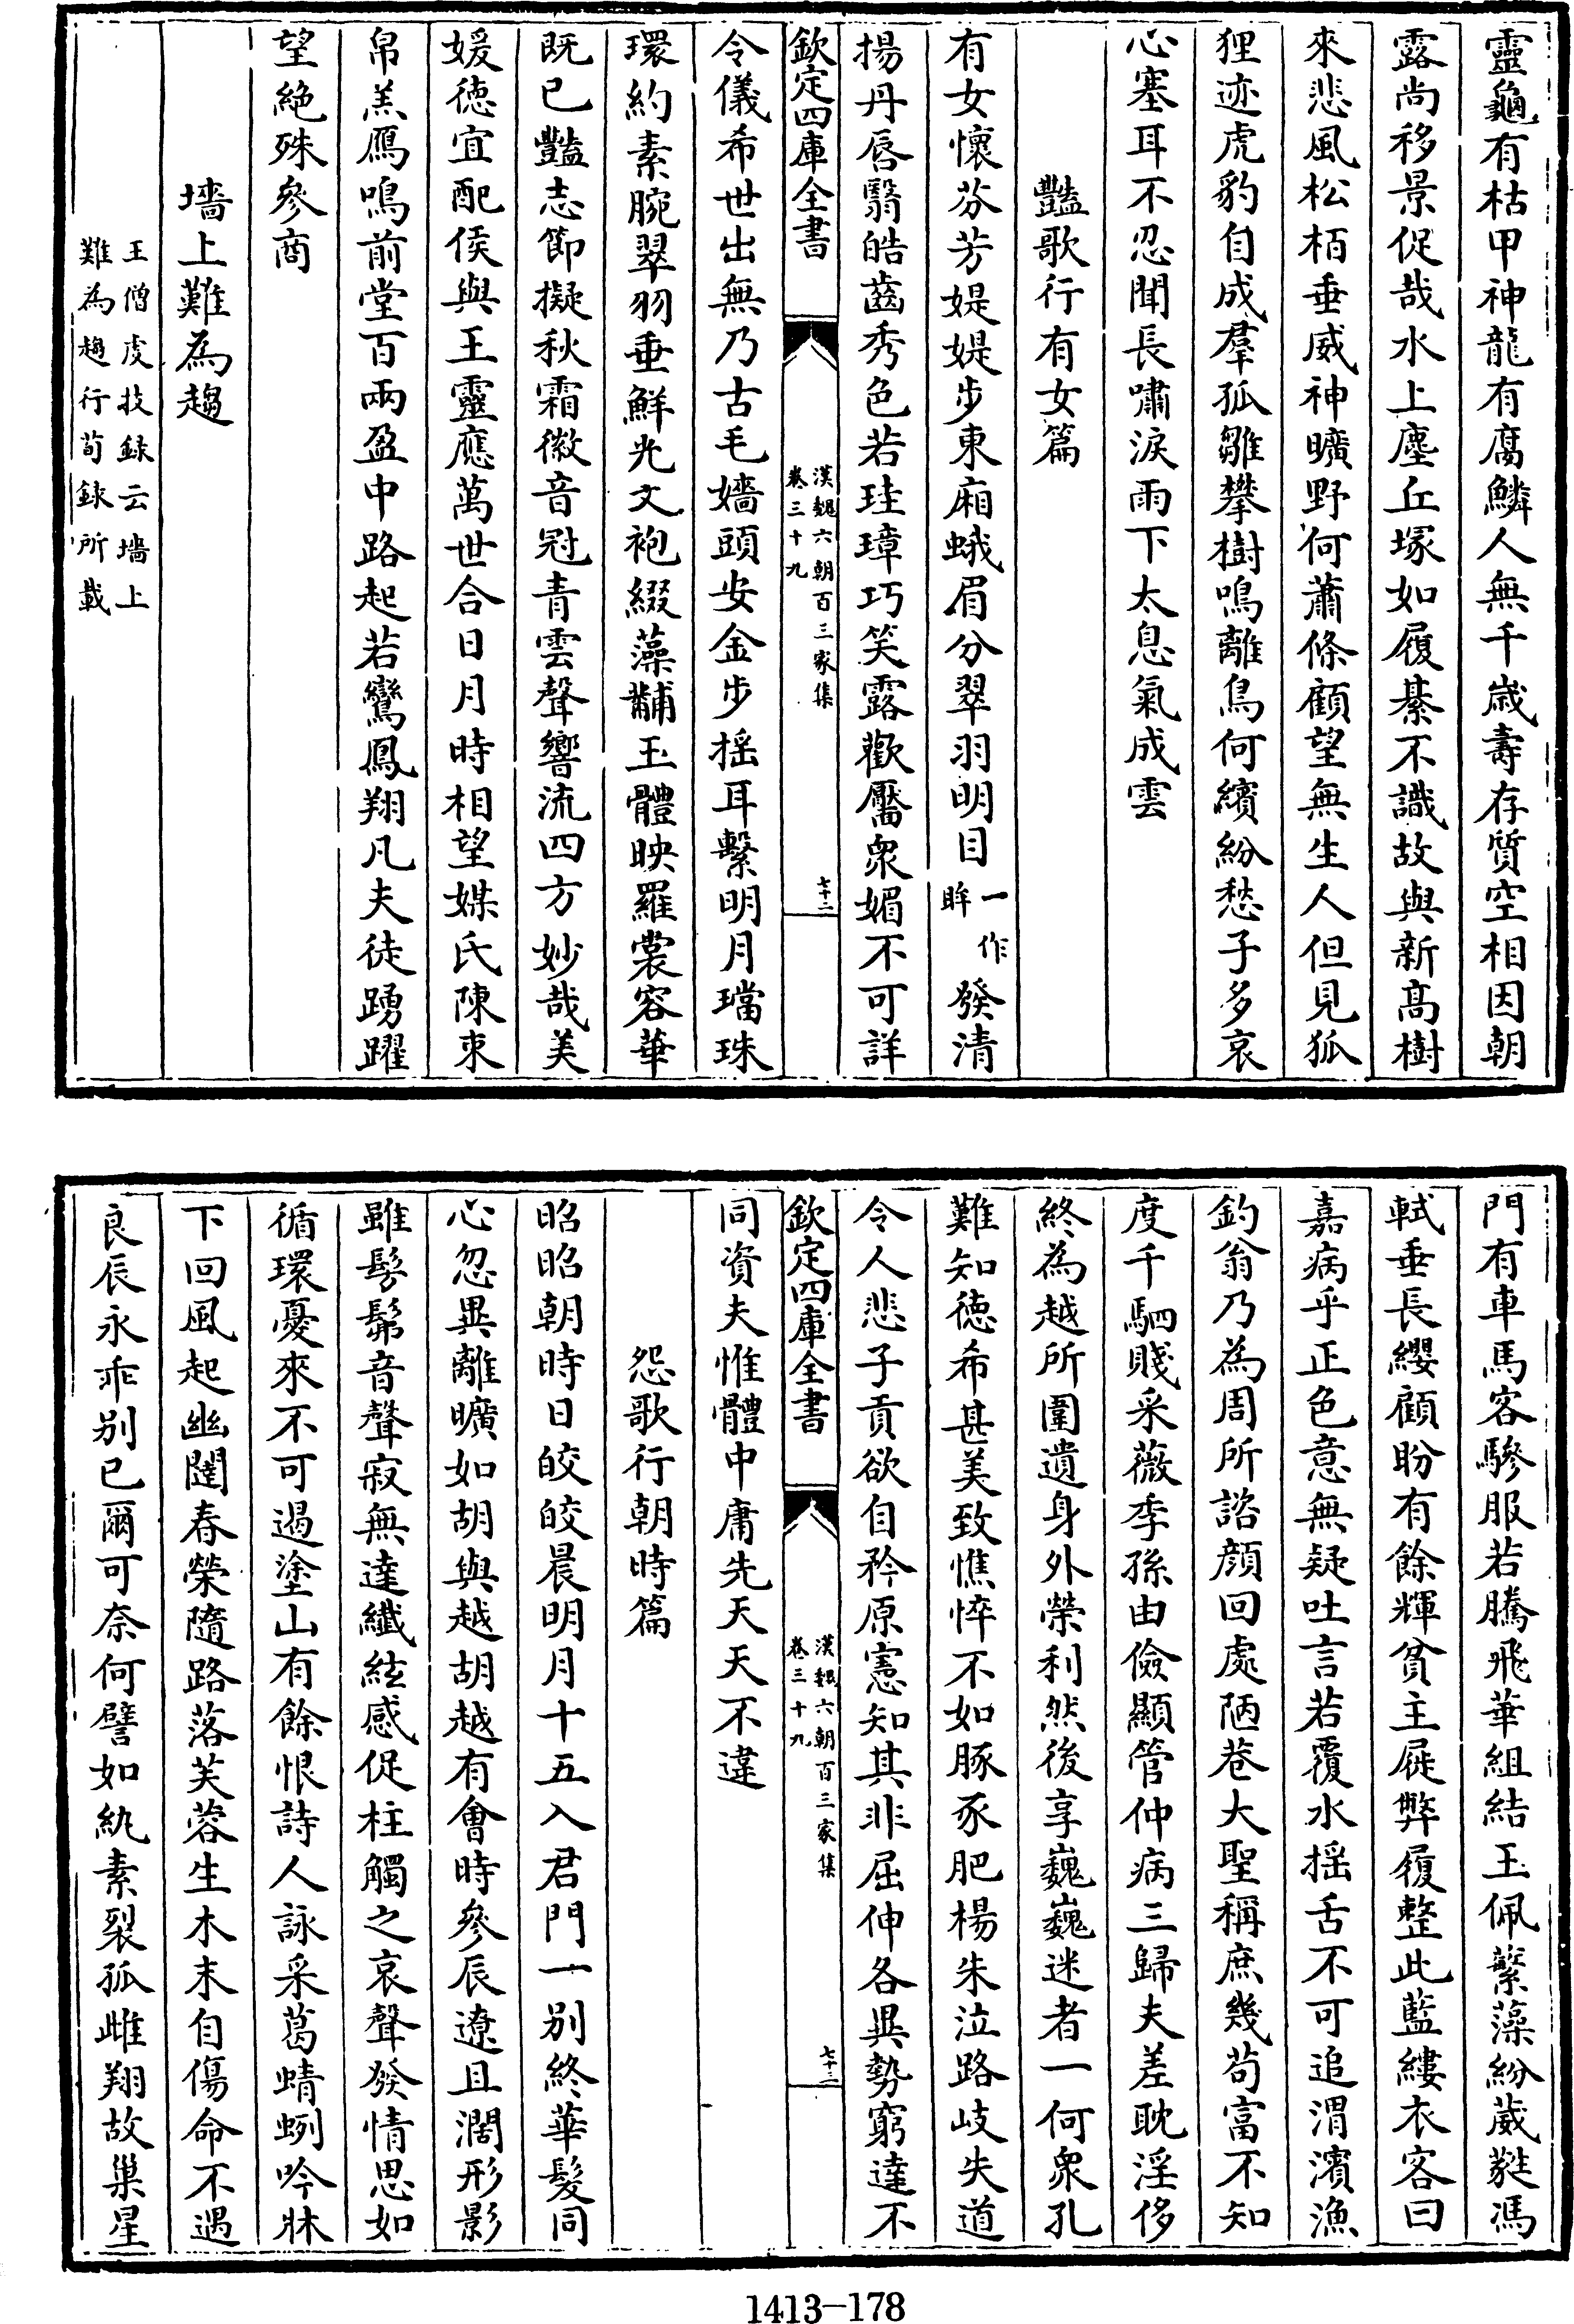 靈龜有枯甲神龍有腐鱗人無千歳壽存質空相因朝
露尚移景促哉水上塵丘塚如履綦不識故與新髙樹
來悲風松栢垂威神曠野何蕭條顧望無生人但見狐
狸迹虎豹自成羣孤雛攀樹鳴離鳥何繽紛愁子多哀
心塞耳不忍聞長嘯淚雨下太息氣成雲
豔歌行有女篇
有女懷芬芳媞媞步東廂蛾眉分翠羽明目一作眸發清
揚丹唇翳皓齒秀色若珪璋巧笑露歡靨衆媚不可詳
欽定四庫全書
漢魏六朝百三家集
卷三十九
七十二
令儀希世出無乃古毛嬙頭安金步揺耳繫明月璫珠
環約素腕翠羽垂鮮光文袍綴藻黼玉體映羅裳容華
既已豔志節擬秋霜徽音冠青雲聲響流四方妙哉英
媛徳宜配侯與王靈應萬世合日月時相望媒氏陳束
帛羔鴈鳴前堂百兩盈中路起若鸞鳳翔凡夫徒踴躍
望絶殊參商
墻上難為趨
王僧虔技録云墻上
難為趨行荀録所載
門有車馬客驂服若騰飛華組結玉佩蘩藻紛葳蕤馮
軾垂長纓顧盼有餘輝貧主屣弊履整此藍縷衣客曰
嘉病乎正色意無疑吐言若覆水揺舌不可追渭濱漁
釣翁乃為周所諮顔回處陋巷大聖稱庶幾茍富不知
度千駟賤采薇季孫由儉顯管仲病三歸夫差耽淫侈
終為越所圍遺身外榮利然後享巍巍迷者一何衆孔
難知徳希甚美致憔悴不如豚豕肥楊朱泣路岐失道
令人悲子貢欲自矜原憲知其非屈伸各異勢窮達不
欽定四庫全書
漢魏六朝百三家集
卷三十九
七十三
同資夫惟體中庸先天天不違
怨歌行朝時篇
昭昭朝時日皎皎晨明月十五入君門一别終華髮同
心忽異離曠如胡與越胡越有會時參辰遼且濶形影
雖髣髴音聲寂無達纖絃感促柱觸之哀聲發情思如
循環憂來不可遏塗山有餘恨詩人詠采葛蜻蛚吟牀
下回風起幽闥春榮隨路落芙蓉生木末自傷命不遇
良辰永乖别已爾可奈何譬如紈素裂孤雌翔故巢星
1413—178